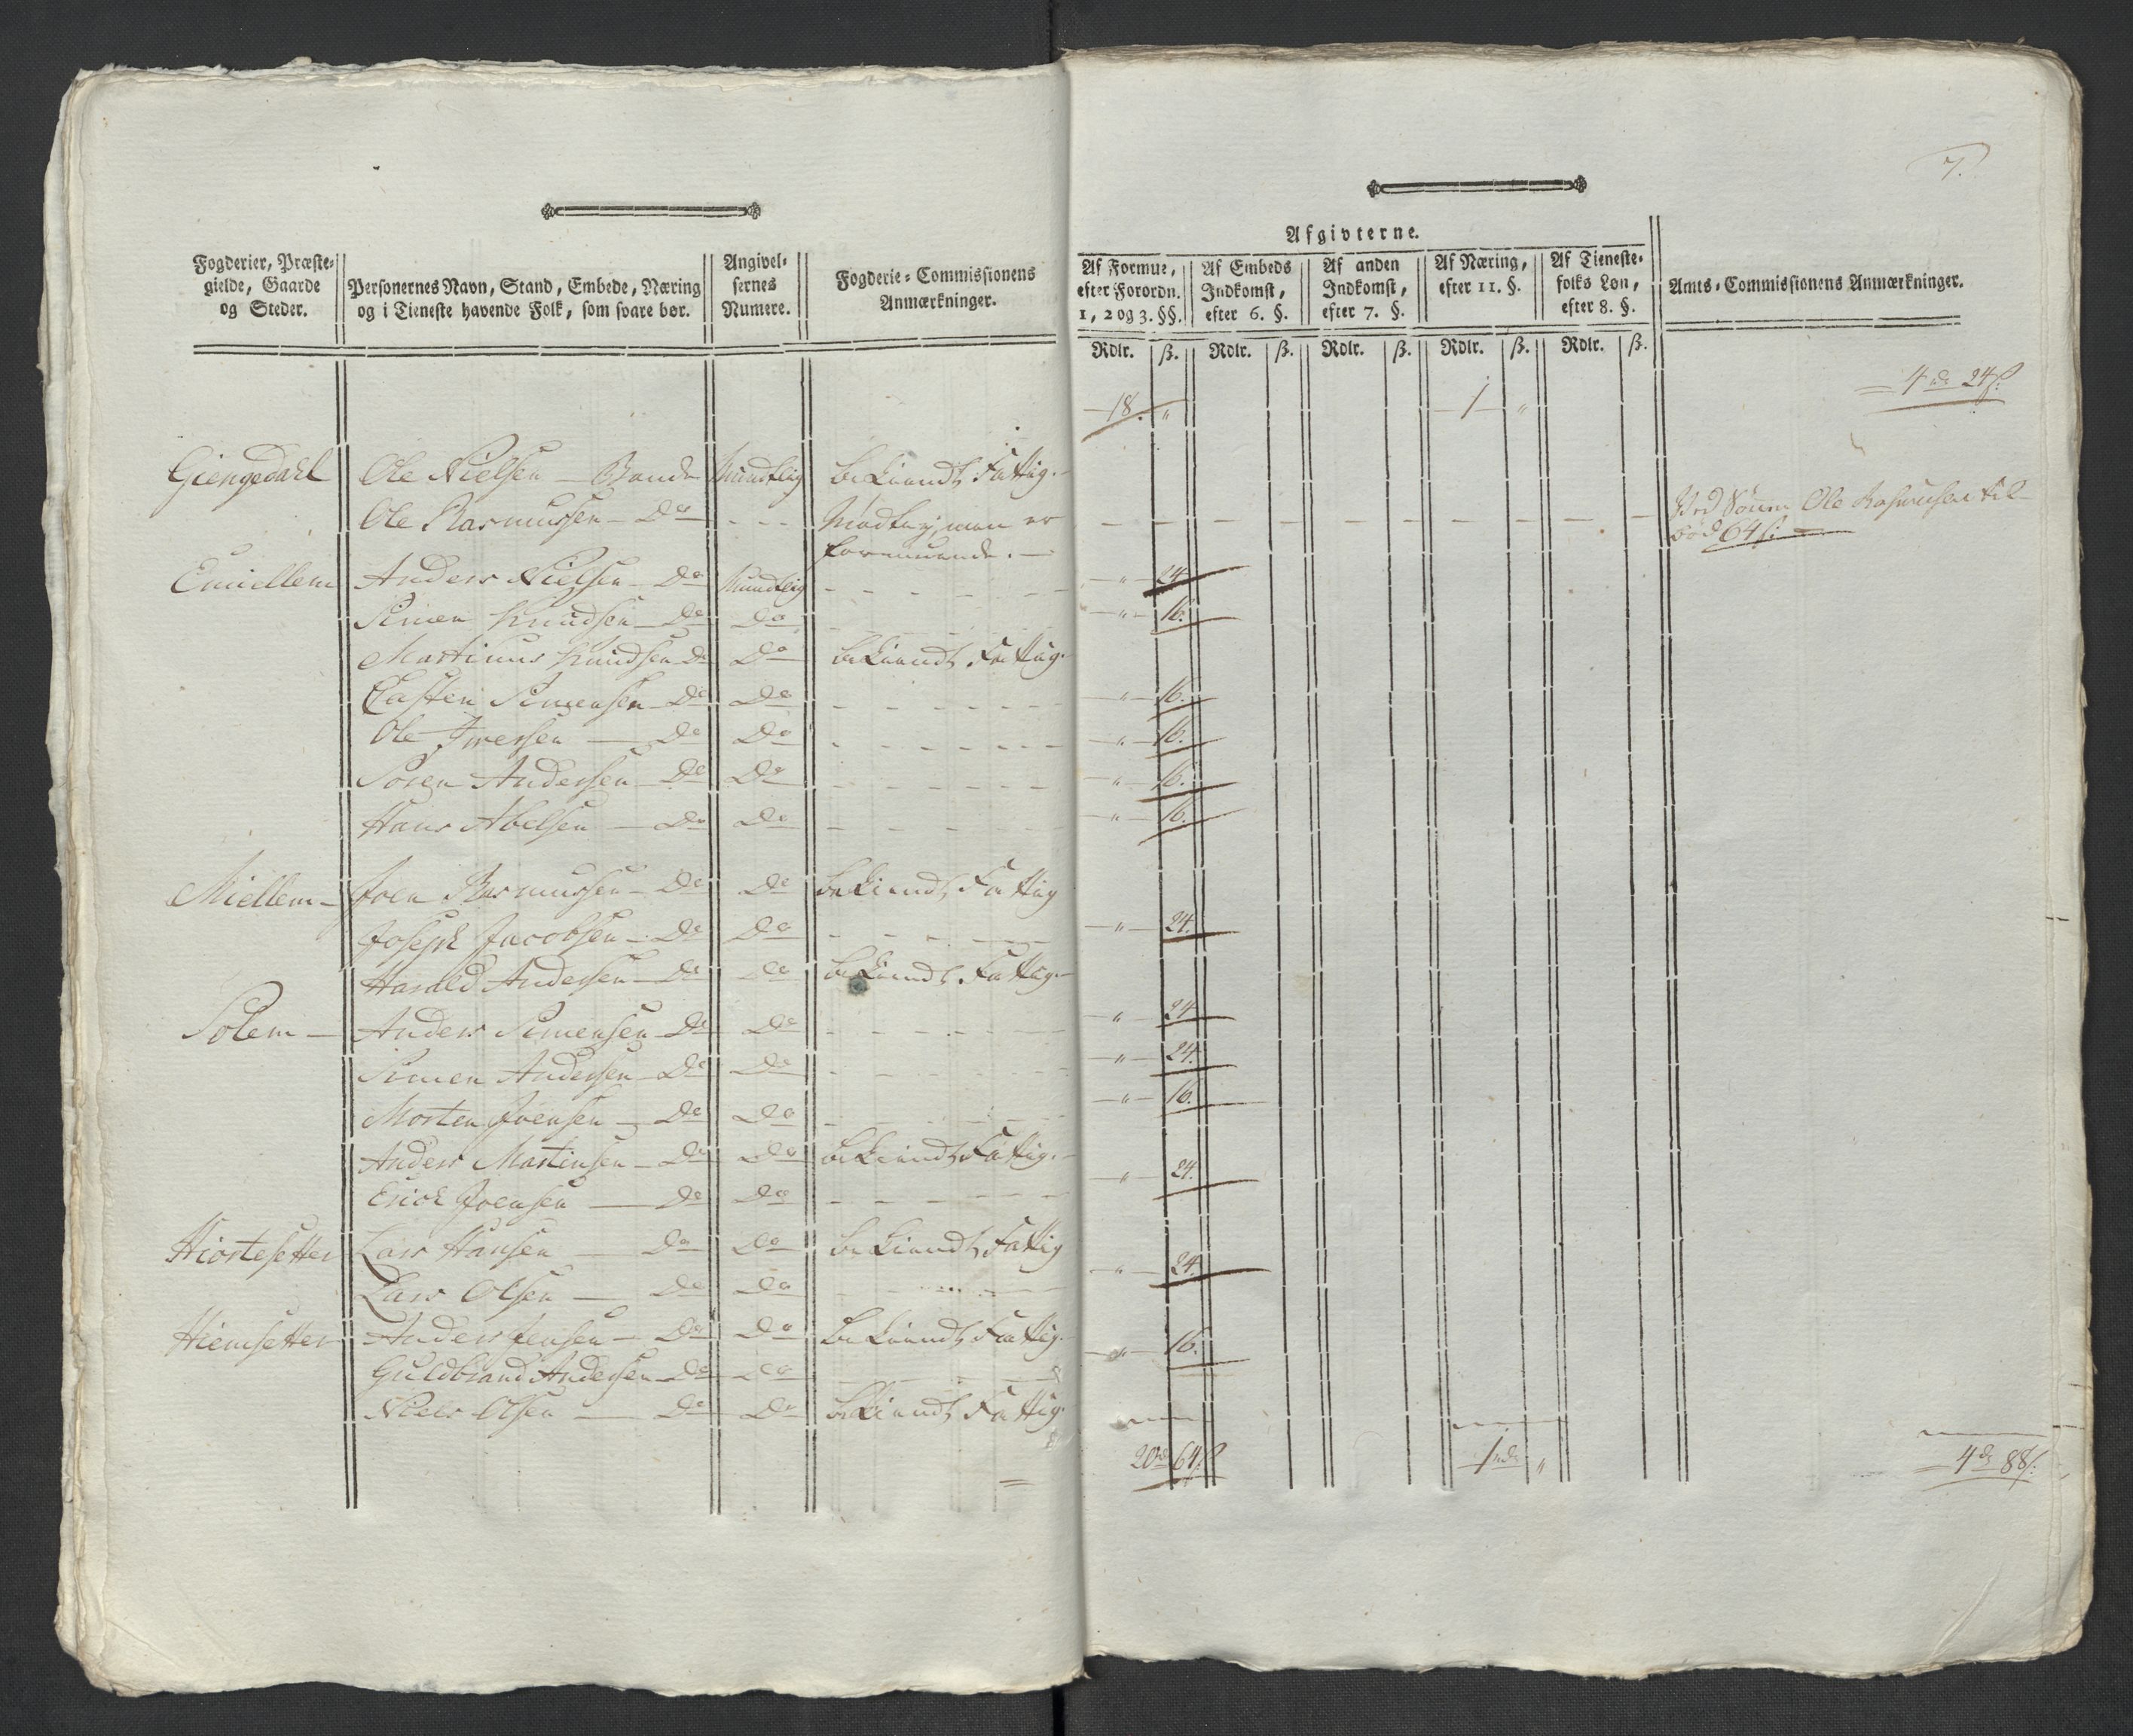 7.
Fogderier, Præste-
gielde, Gaarde
og Steder.
Personernes Navn, Stand, Embede, Næring
og i Tieneste havende Folk, som svare bør.
Angivel-
sernes
Numere.
Fogderie-Commissionens
Anmærkninger.
Afgivterne.
Af Formue,
efter Forordn.
1, 2 og 3. §§.
Af Embeds
Indkomst,
efter 6. §.
Af anden
Indkomst,
efter 7. §.
Af Næring,
efter 11. §.
Af Tieneste-
folks Løn,
efter 8. §.
Amts-Commissionens Anmærkninger.
Rdlr. ß. Rdlr. ß. Rdlr. ß. Rdlr. ß. Rdlr. ß.
18. " 1 " 4 rdr 24 ß:
Giengedahl Ole Nielsen Bonde Mundtlig bekiendt Fattig.
Ole Rasmussen Do - - - Modtog, men er Ved Sønnen Ole Rasmussen til-
formuende. bød 64 ß:
Emiellem Anders Nielsen Do Mundtlig " 24
Simen Knudsen Do Do " 16.
Martinus Knudsen Do Do bekiendt Fattig.
Casten Simensen Do Do " 16.
Ole Iversen Do Do " 16.
Søren Andersen Do Do " 16.
Hans Abelsen Do Do " 16.
Miellem Joen Rasmussen Do Do bekiendt Fattig
Joseph Jacobsen Do Do " 24.
Harald Andersen Do Do bekiendt Fattig.
Solem Anders Simensen Do Do " 24
Simen Andersen Do Do " 24.
Morten Joensen Do Do " 16.
Anders Martinsen Do Do bekiendt Fattig.
Erich Joensen Do Do " 24.
Hiortesetter Lars Hansen Do Do bekiendt Fattig
Lars Olsen Do Do " 24.
Hiemsetter Anders Jensen Do Do bekiendt Fattig.
Guldbrand Andersen Do Do " 16.
Niels Olsen Do Do bekiendt Fattig.
20 rdr 64 ß 1 rdr " 4 dr 88 ß: